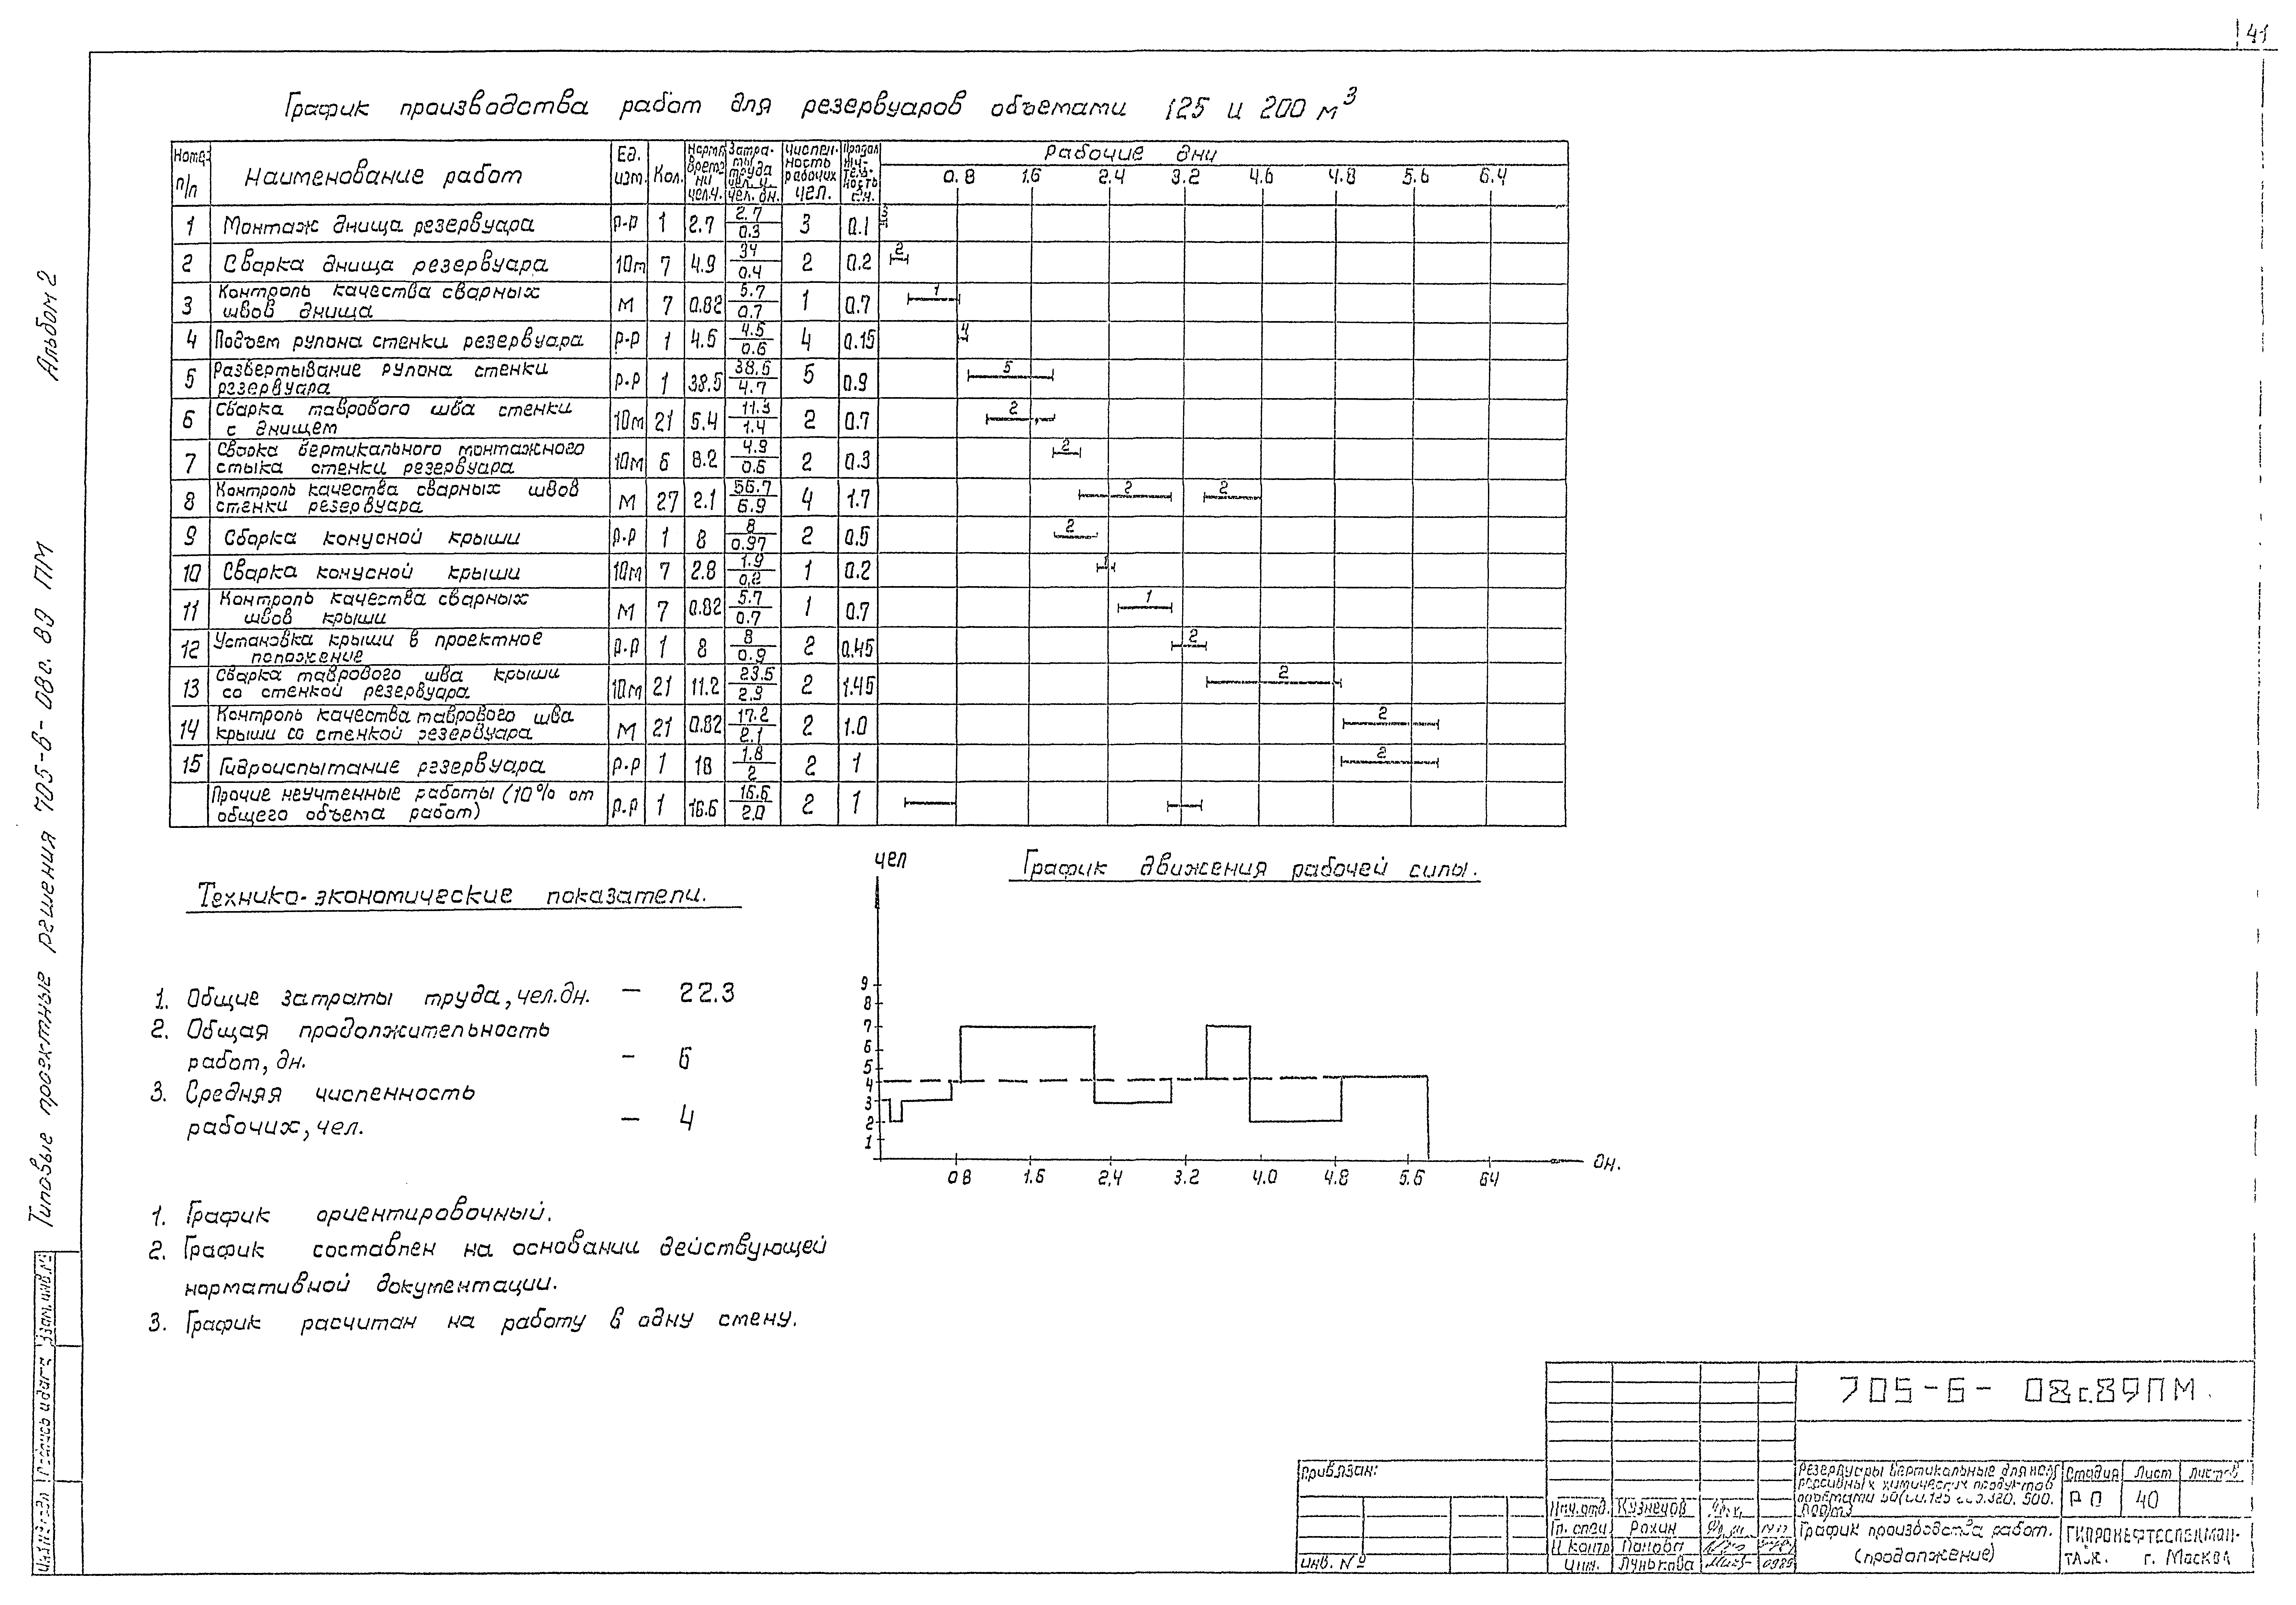 41
График производства работ для резервуаров объемами 125 и 200 м³
Номер п/п | Наименование работ | Ед. изм. | Кол. | Норма времени чел.ч. | Затраты труда чел.ч. / чел.дн. | Численность рабочих чел. | | Рабочие дни
0.8 1.6 2.4 3.2 4.6 4.8 5.6 6.4
1 Монтаж днища резервуара р-р 1 2.7 2.7/0.3 3 0.1 3
2 Сварка днища резервуара 10м 7 4.9 34/0.4 2 0.2 2
3 Контроль качества сварных
швов днища м 7 0.82 5.7/0.7 1 0.7 1
4 Подъем рулона стенки резервуара р-р 1 4.5 4.5/0.6 4 0.15 4
5 Развертывание рулона стенки
резервуара р-р 1 38.5 38.5/4.7 5 0.9 5
6 Сварка таврового шва стенки
с днищем 10м 21 5.4 11.3/1.4 2 0.7 2
7 Сварка вертикального монтажного
стыка стенки резервуара 10м 6 8.2 4.9/0.6 2 0.3 2
8 Контроль качества сварных швов
стенки резервуара м 27 2.1 56.7/6.9 4 1.7 2 2
9 Сборка конусной крыши р-р 1 8 8/0.97 2 0.5 2
10 Сварка конусной крыши 10м 7 2.8 1.9/0.2 1 0.2 1
11 Контроль качества сварных
швов крыши м 7 0.82 5.7/0.7 1 0.7 1
12 Установка крыши в проектное
положение р-р 1 8 8/0.9 2 0.45 2
13 Сварка таврового шва крыши
со стенкой резервуара 10м 21 11.2 23.5/2.9 2 1.45 2
14 Контроль качества таврового шва
крыши со стенкой резервуара м 21 0.82 17.2/2.1 2 1.0 2
15 Гидроиспытание резервуара р-р 1 18 1.8/2 2 1 2
Прочие неучтенные работы (10% от
общего объема работ) р-р 1 16.6 16.6/2.0 2 1
Технико-экономические показатели.
1. Общие затраты труда, чел.дн. – 22.3
2. Общая продолжительность
работ, дн. – 6
3. Средняя численность
рабочих, чел. – 4
1. График ориентировочный.
2. График составлен на основании действующей
нормативной документации.
3. График расчитан на работу в одну смену.
График движения рабочей силы.
чел
9
8
7
6
5
4
3
2
1
0.8 1.6 2.4 3.2 4.0 4.8 5.6 64
дн.
Альбом 2
Типовые проектные решения 705-6-08с.89 ПМ
Взам.инв.№
Подпись и дата
Инв.№ подл
705-6-08с.89ПМ.
Привязан:
Инв. №
Нач.отд. Кузнецов
Гл. спец. Рохин
Н контр Панова
Инж. Лунькова 0989
Резервуары вертикальные для
химических продуктов
График производства работ.
(продолжение)
Стадия Лист Листов
РП 40
ГИПРОНЕФТЕСПЕЦМОН-
ТАЖ. г. Москва